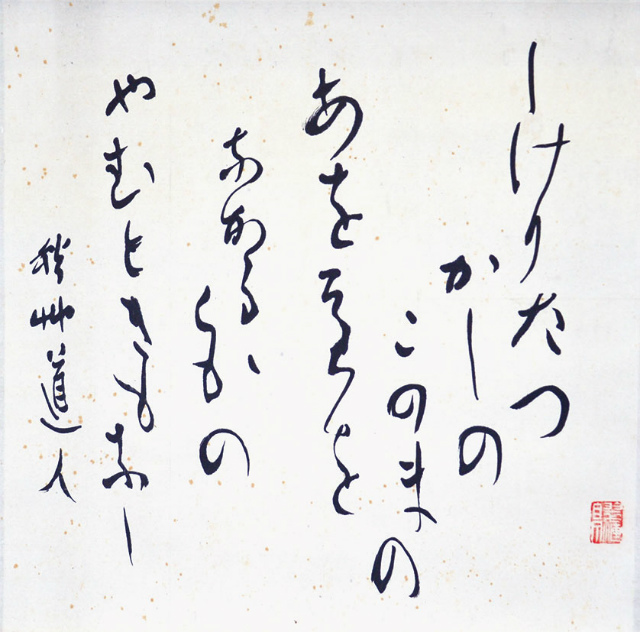 しけりたつ
かしの
このまの
あをそらを
なかるゝくもの
やむときもなし
秋艸道人